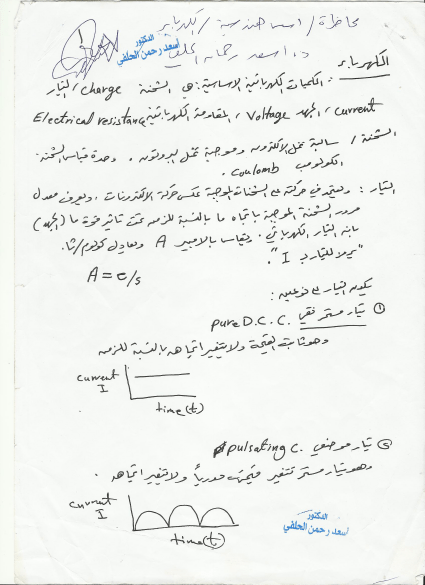 محاضرة / اسس هندسية / كهربائي
د. اسعد رحمن الحلفي
الدكتور
أسعد رحمن الحلفي
الكهرباء
: الكميات الكهربائية الاساسية: هي الشحنة charge ، التيار
current ، الجهد Voltage ، المقاومة الكهربائية Electrical resistance
الشحنة / سالبة تمثل الالكترون وموجبة تمثل البروتون . وحدة قياس الشحنة
الكولومب coulomb .
التيار : ويعتمد في حركته على الشحنات الموجبة عكس حركة الالكترونات . ويعرف معدل
مرور الشحنة الموجبة باتجاه ما بالنسبة للزمن تحت تاثير قوة ما (الجهد)
بانه التيار الكهربائي . ويقاسا بالامبير A ويعادل كولوم/ثا.
"يرمز للتيار بـ I".
A = c/s
يكون التيار على نوعين :
① تيار مستمر نقي pure D.C.C.
وهو ثابت القيمة ولا يتغير اتجاهه بالنسبة للزمن
current
I
time(t)
② تيار موجي pulsating c.
وهو تيار مستمر تتغير قيمته دورياً ولا يتغير اتجاهه .
current
I
time(t)
الدكتور
أسعد رحمن الحلفي